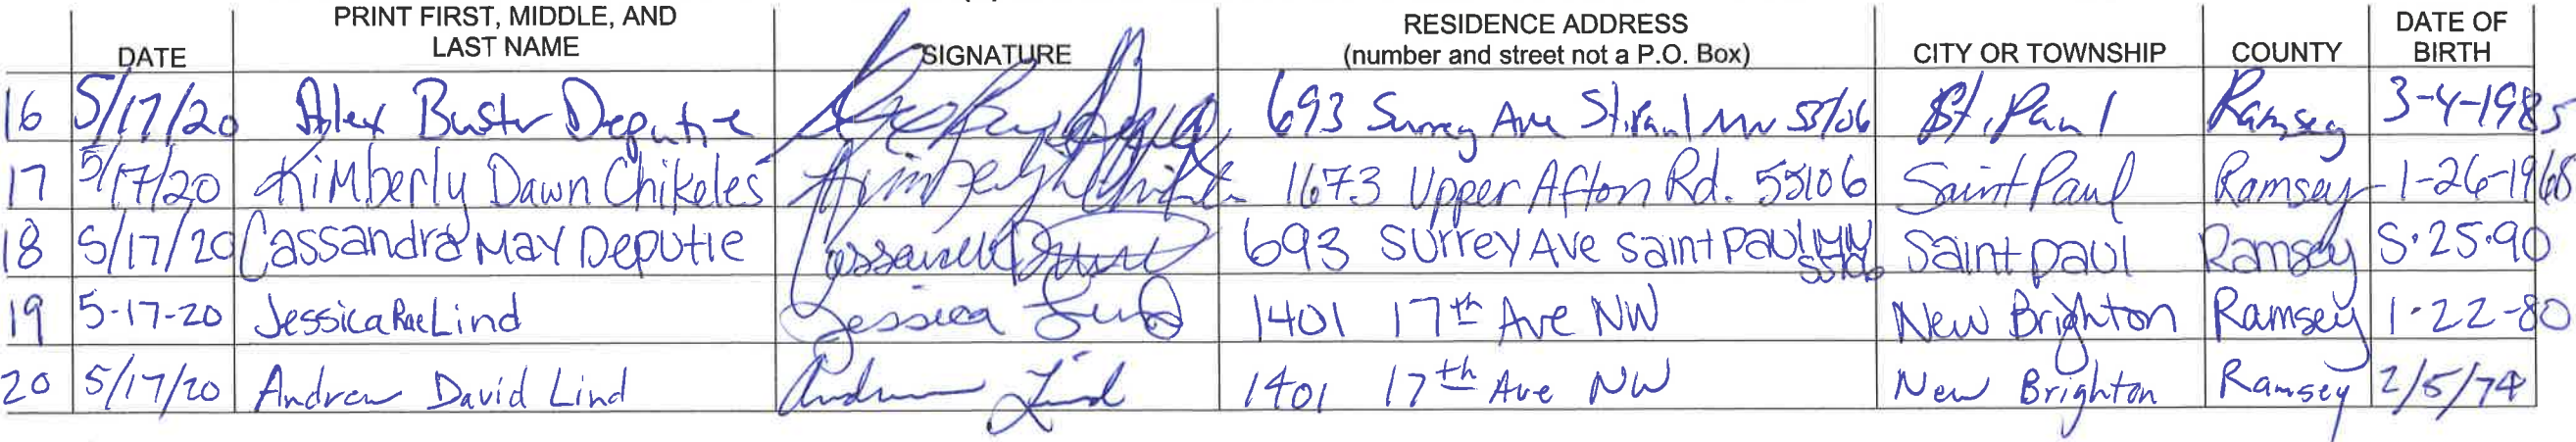 DATE PRINT FIRST, MIDDLE, AND LAST NAME SIGNATURE RESIDENCE ADDRESS (number and street not a P.O. Box) CITY OR TOWNSHIP COUNTY DATE OF BIRTH
16 5/17/20 Alex Buster Deputie 693 Surrey Ave St. Paul MN 55106 St. Paul Ramsey 3-4-1985
17 5/17/20 Kimberly Dawn Chikeles Kimberly Chikeles 1673 Upper Afton Rd. 55106 Saint Paul Ramsey 1-26-1968
18 5/17/20 Cassandra May Deputie 693 Surrey Ave Saint Paul MN 55106 Saint Paul Ramsey 5.25.90
19 5-17-20 Jessica Rae Lind Jessica Lind 1401 17th Ave NW New Brighton Ramsey 1-22-80
20 5/17/20 Andrew David Lind Andrew Lind 1401 17th Ave NW New Brighton Ramsey 2/5/74